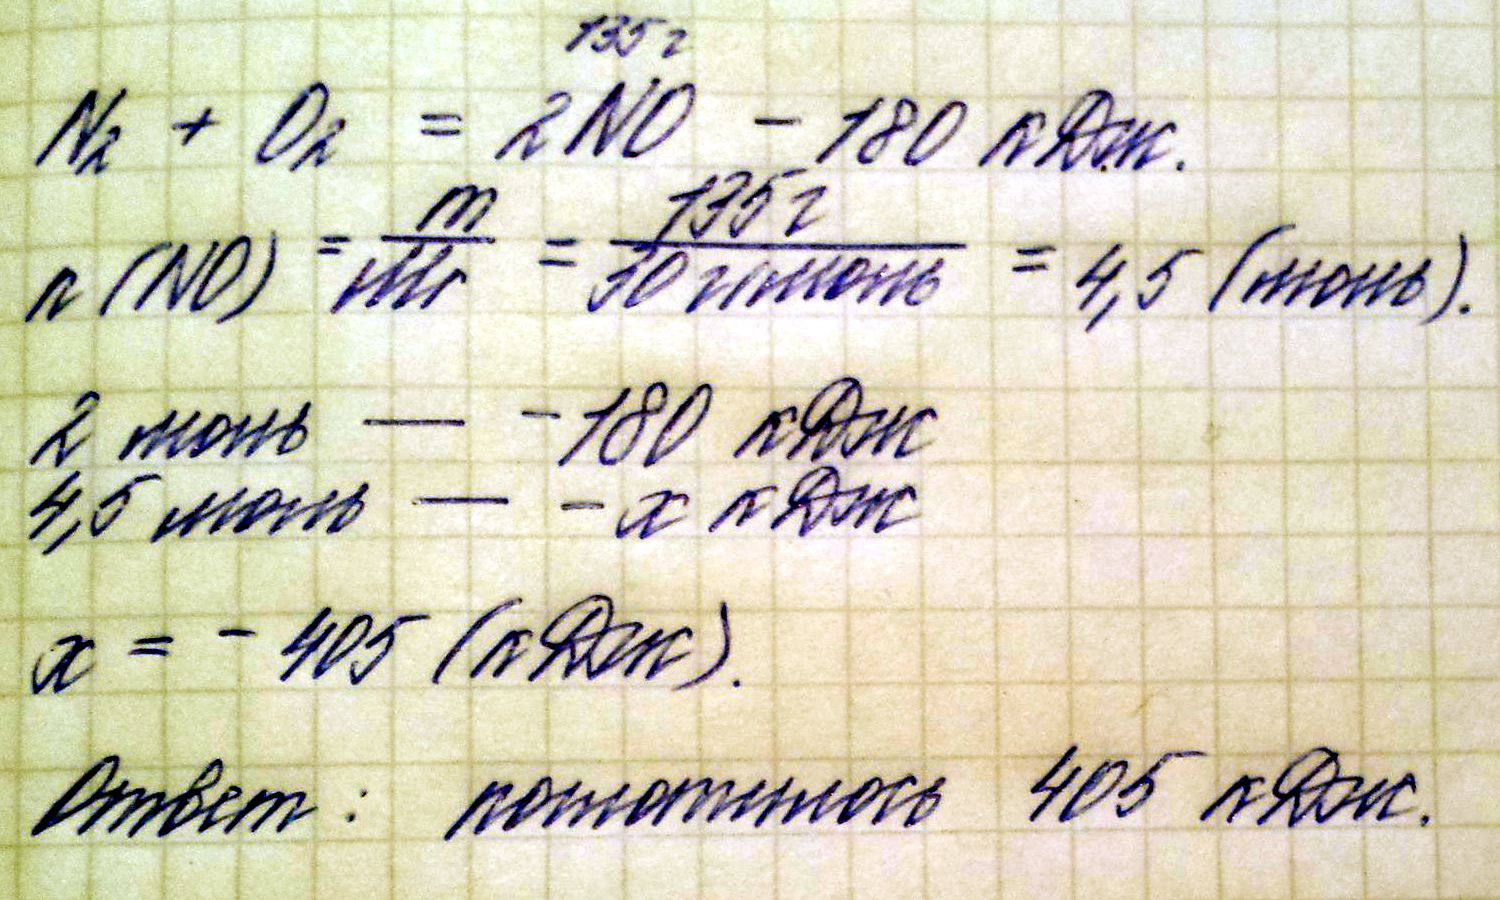 135 г
N₂ + O₂ = 2NO - 180 кДж.
n (NO) = m/Mr = 135 г/30 г/моль = 4,5 (моль).
2 моль — -180 кДж
4,5 моль — -x кДж
x = - 405 (кДж).
Ответ: поглотилось 405 кДж.